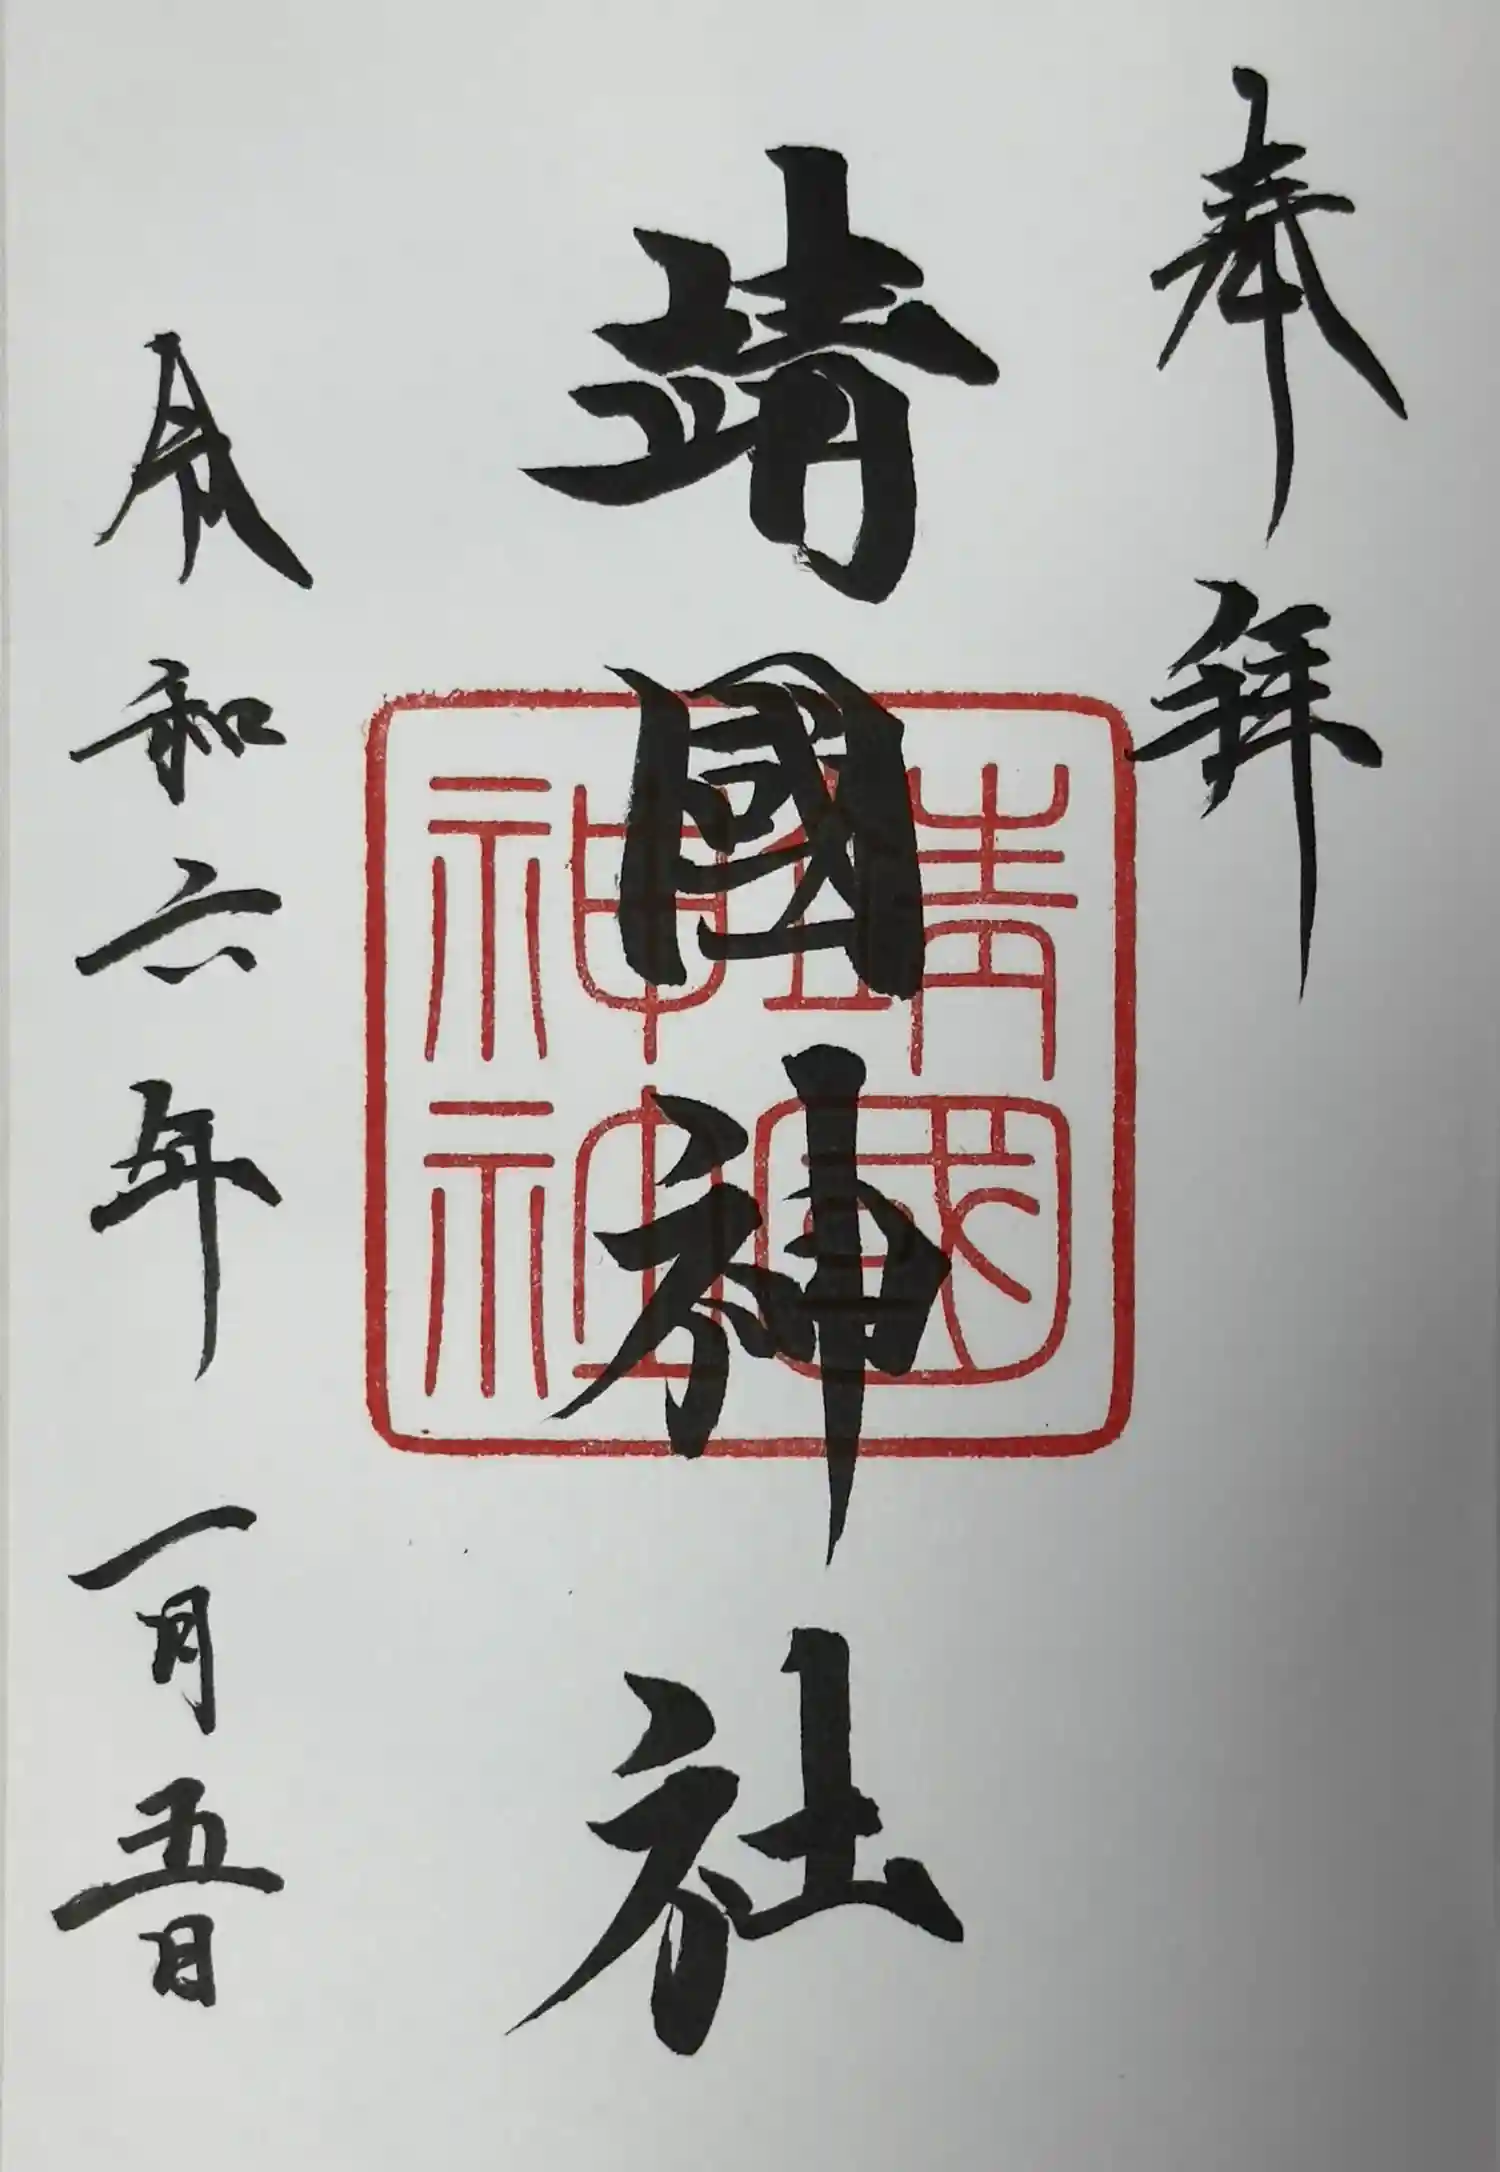 奉拜
靖國神社
靖國
神社
令和六年 一月五日